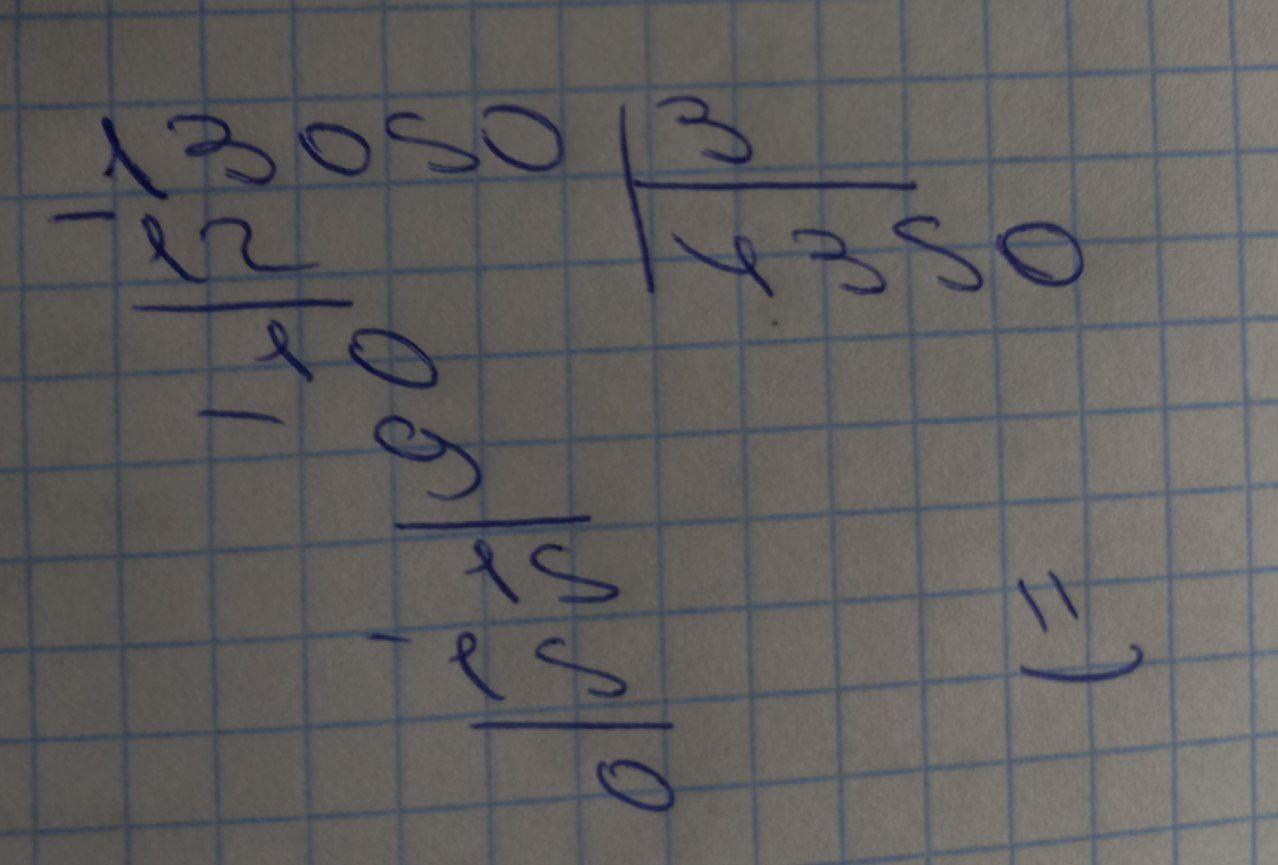 13050 | 3
- 12 4350
10
- 9
15
- 15
0
=)